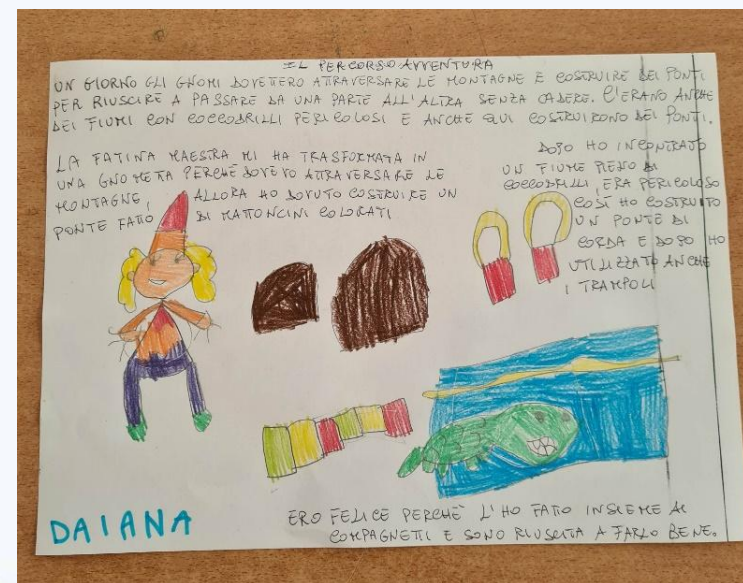 IL PERCORSO AVVENTURA
UN GIORNO GLI GNOMI DOVETTERO ATTRAVERSARE LE MONTAGNE E COSTRUIRE DEI PONTI
PER RIUSCIRE A PASSARE DA UNA PARTE ALL'ALTRA SENZA CADERE. C'ERANO ANCHE
DEI FIUMI CON COCCODRILLI PERICOLOSI E ANCHE QUI COSTRUIRONO DEI PONTI.
LA FATINA MAESTRA MI HA TRASFORMATA IN
UNA GNOMETTA PERCHÈ DOVEVO ATTRAVERSARE LE
MONTAGNE, ALLORA HO DOVUTO COSTRUIRE UN
PONTE FATTO DI MATTONCINI COLORATI
DOPO HO INCONTRATO
UN FIUME PIENO DI
COCCODRILLI, ERA PERICOLOSO
COSÌ HO COSTRUITO
UN PONTE DI
CORDA E DOPO HO
UTILIZZATO ANCHE
I TRAMPOLI
ERO FELICE PERCHÈ L'HO FATTO INSIEME AI
COMPAGNETTI E SONO RIUSCITA A FARLO BENE.
DAIANA